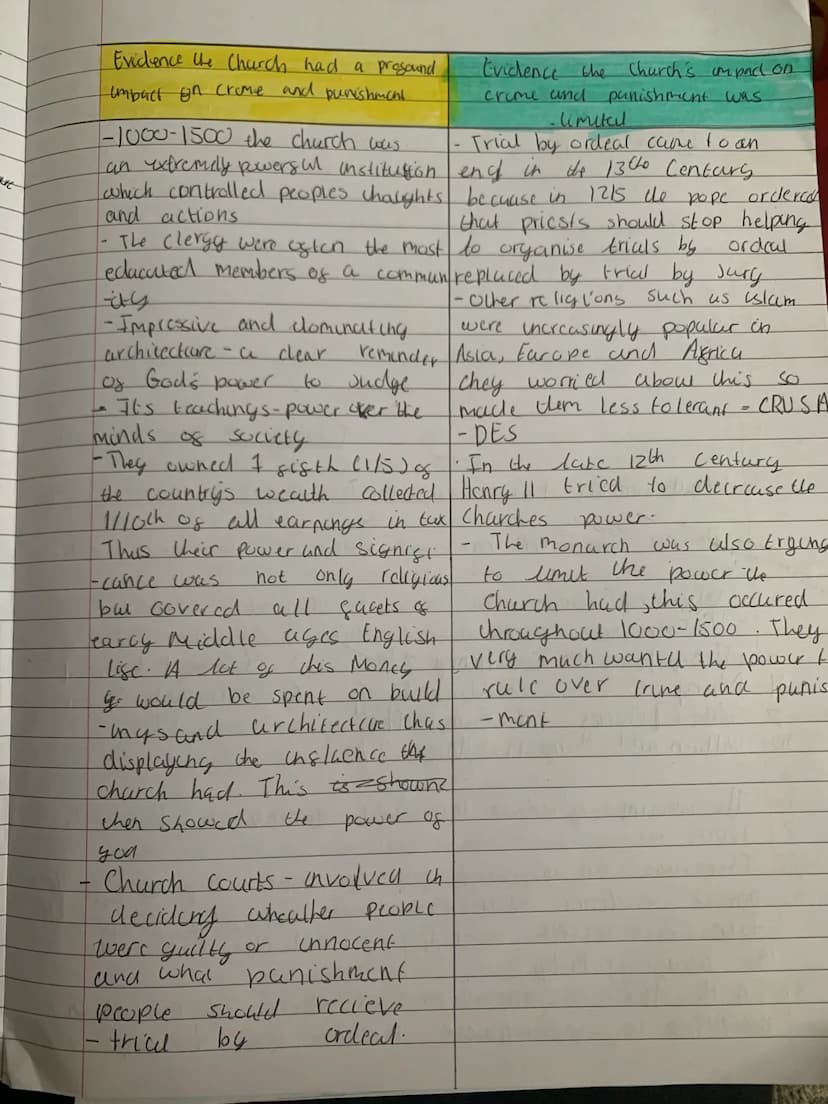 Evidence the Church had a profound
impact on crime and punishment
-1000-1500 the church was
an extremely powerful institution
which controlled peoples thaughts
and actions
- The clergy were often the most
educated members of a commun
-ity
- Impressive and dominating
architecture - a clear reminder
of God's power to Judge
- Its teachings - power over the
minds of society
- They owned 1 fifth (1/5) of
the country's wealth collected
1/10th of all earnings in tax
Thus their power and signifi
-cance was not only religious
but covered all facets of
early Middle ages English
life. A lot of this Money
would be spent on build
-ings and architecture thus
displaying the influence the
church had. This is shown
then showed the power of
god
- Church courts - involved in
deciding wheather people
were guilty or innocent
and what punishment
people should recieve
- trial by ordeal.
Evidence the Church's impact on
crime and punishment was
- limited
- Trial by ordeal came to an
end in the 13th Century
because in 1215 the pope ordered
that priests should stop helping
to organise trials by ordeal
replaced by trial by Jury
- Other religions such as islam
were increasingly popular in
Asia, Europe and Africa
they worried about this so
made them less tolerant - CRUSA
- DES
. In the late 12th Century
Henry II tried to decrease the
Churches power.
- The monarch was also trying
to limit the power the
church had, this occured
throughout 1000-1500. They
very much wanted the power t
rule over crime and punis
- ment